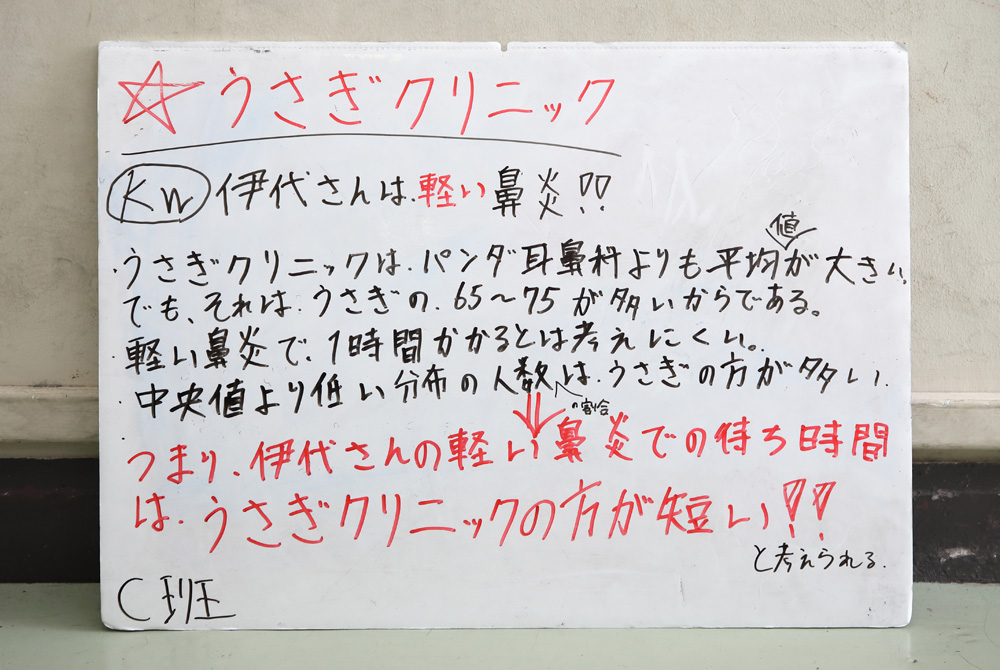 ☆うさぎクリニック
Kn 伊代さんは、軽い鼻炎!!
・うさぎクリニックは、パンダ耳鼻科よりも平均値が大きい。
でも、それは、うさぎの、65~75が多いからである。
・軽い鼻炎で、1時間かかるとは考えにくい。
・中央値より低い分布の人数の割合は、うさぎの方が多い。
つまり、伊代さんの軽い鼻炎での待ち時間
は、うさぎクリニックの方が短い!!
と考えられる。
C班